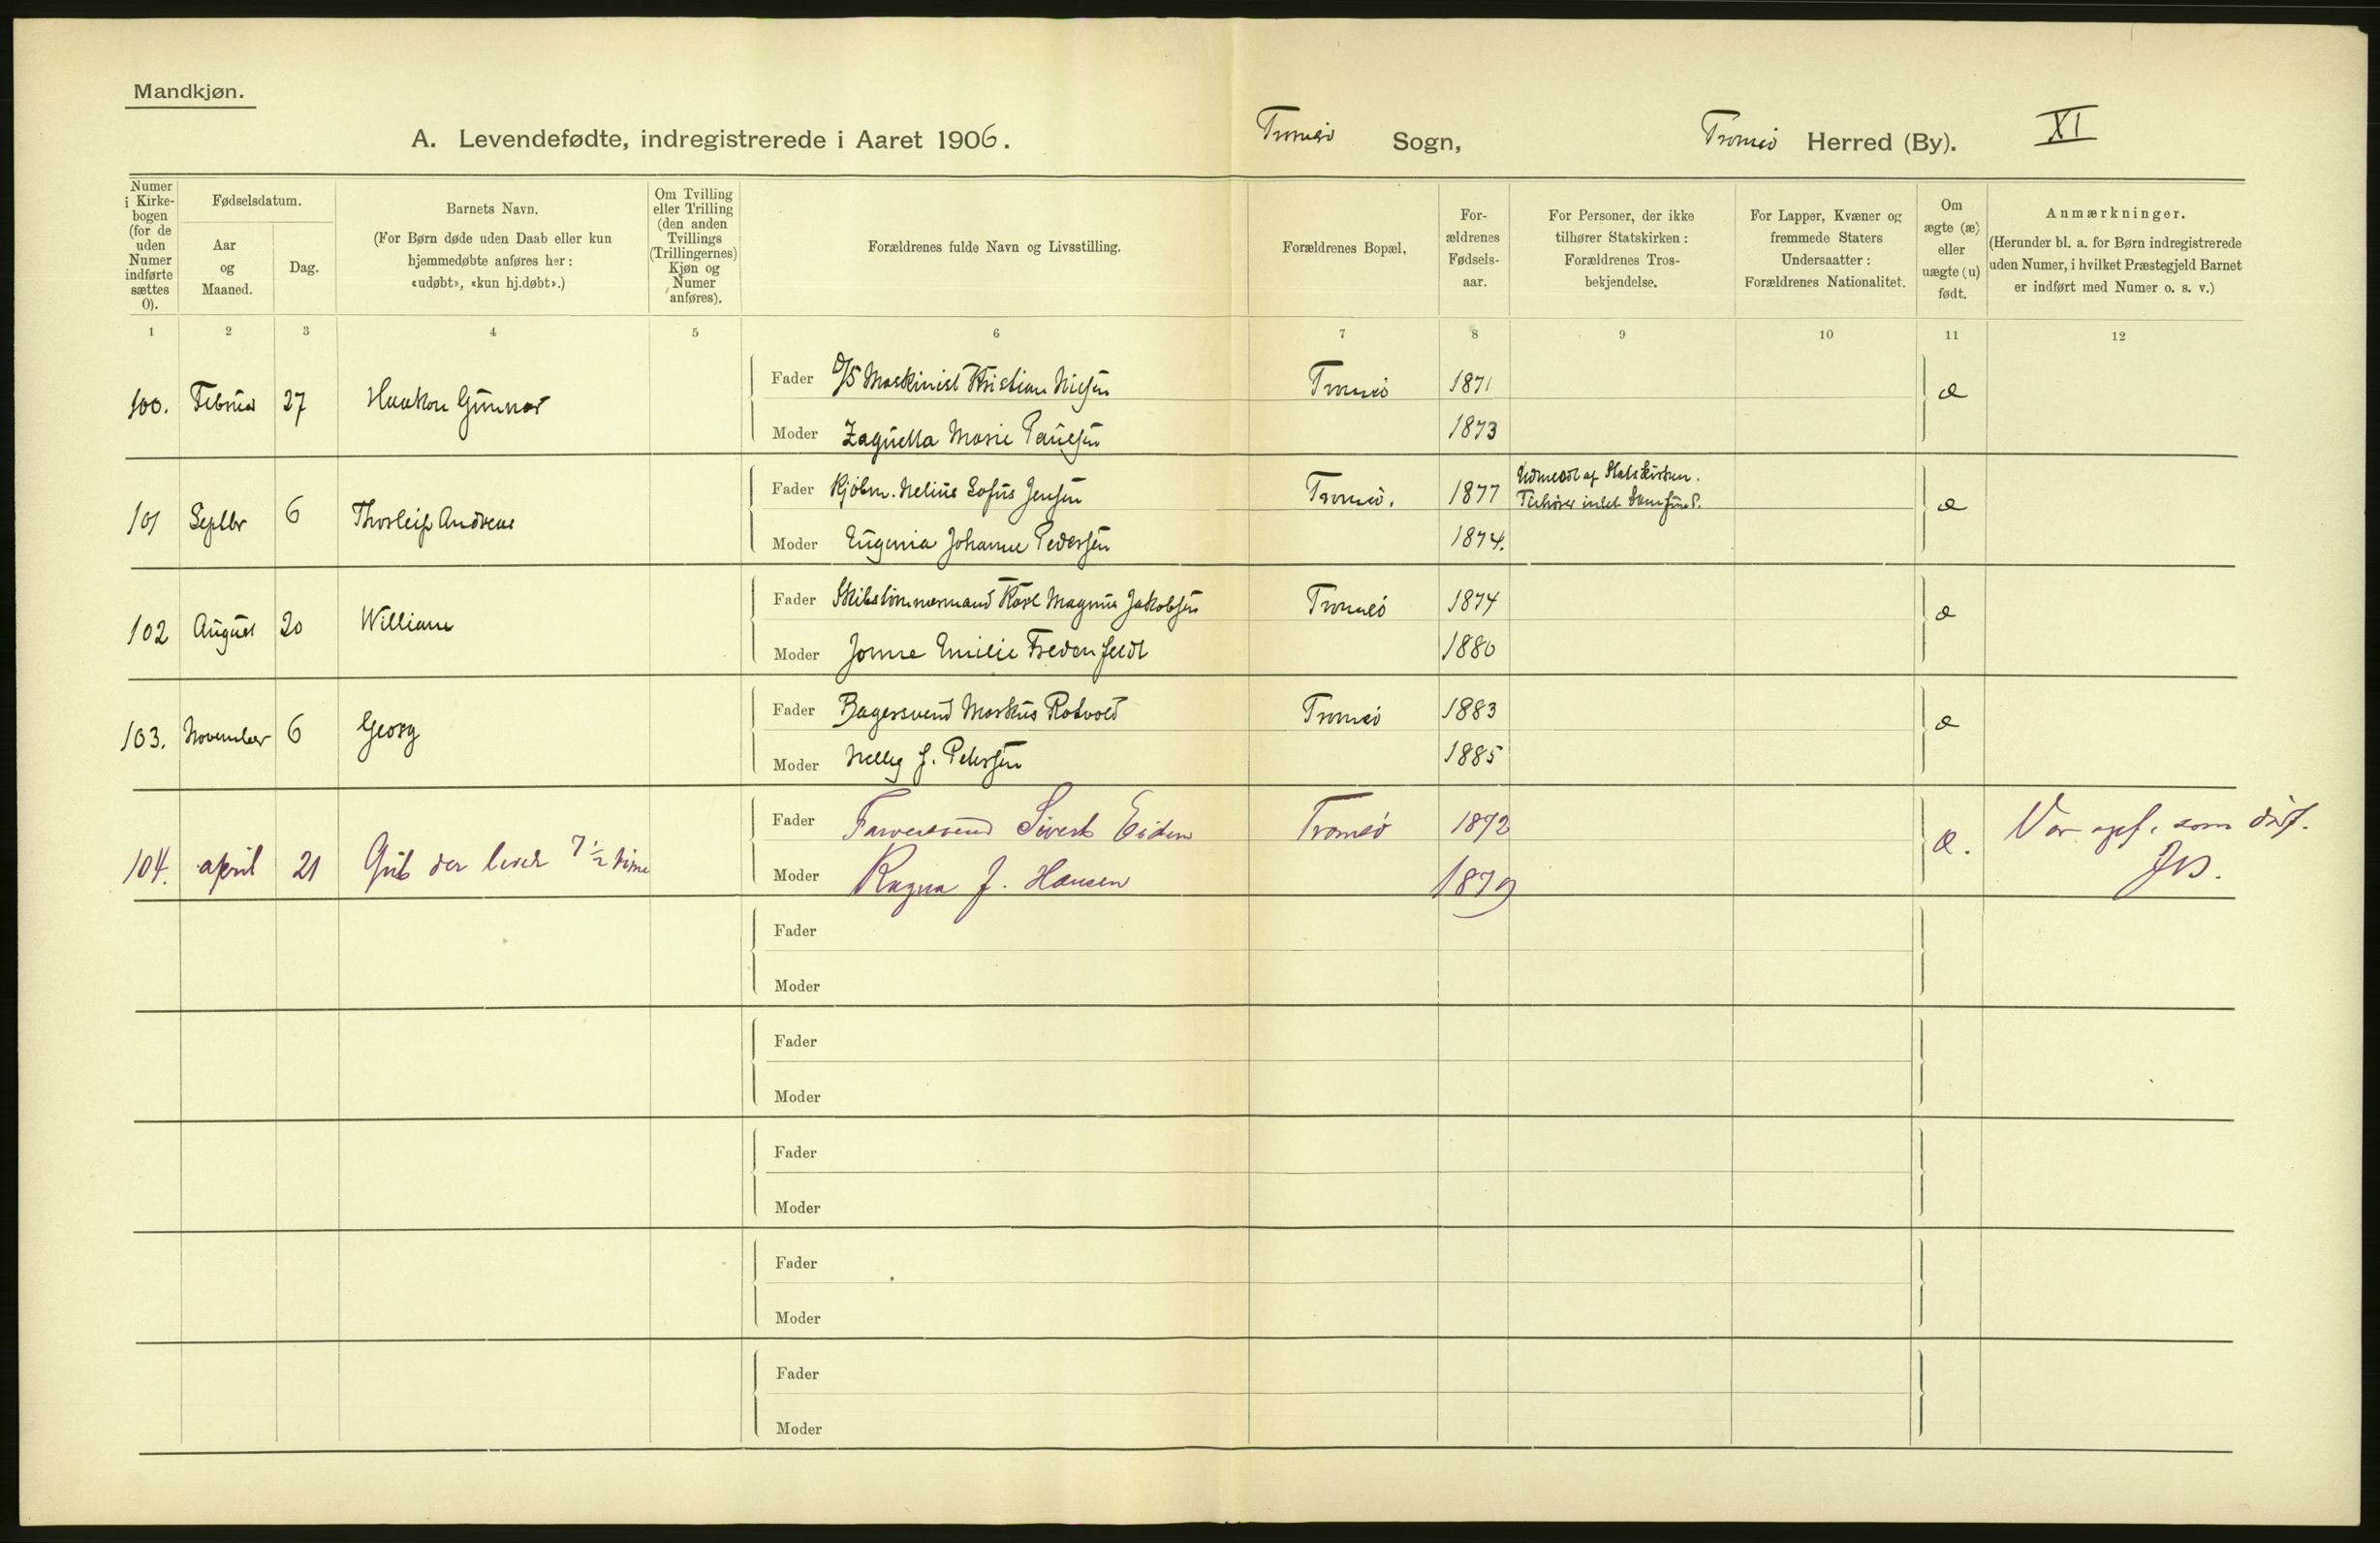 Mandkjøn.
A. Levendefødte, indregistrerede i Aaret 1906.
Tromsø Sogn,
Tromsø Herred (By).
XI
Numer i Kirkebogen (for de uden Numer indførte sættes 0).
Fødselsdatum.
Aar og Maaned.
Dag.
Barnets Navn.
(For Børn døde uden Daab eller kun
hjemmedøbte anføres her:
«udøbt», «kun hj.døbt».)
Om Tvilling
eller Trilling
(den anden
Tvillings
(Trillingernes)
Kjøn og
Numer
anføres).
Forældrenes fulde Navn og Livsstilling.
Forældrenes Bopæl,
For-
ældrenes
Fødsels-
aar.
For Personer, der ikke
tilhører Statskirken:
Forældrenes Tros-
bekjendelse.
For Lapper, Kvæner og
fremmede Staters
Undersaatter:
Forældrenes Nationalitet.
Om
ægte (æ)
eller
uægte (u)
født.
Anmærkninger.
(Herunder bl. a. for Børn indregistrerede
uden Numer, i hvilket Præstegjeld Barnet
er indført med Numer o. s. v.)
1 2 3 4 5 6 7 8 9 10 11 12
100. Februar 27 Haakon Gunnar
Fader Maskinist Kristian Nilsen Tromsø 1871 æ
Moder Zagnella Marie Paulsen 1873
101 Septbr 6 Thorleif Andreas
Fader Kjøbm. Nelius Sofus Jensen Tromsø. 1877 æ
Udmeldt af Statskirken.
Tilhører intet Samfund.
Moder Eugenia Johanne Pedersen 1874.
102 August 20 William
Fader Skibstømmermand Karl Magnus Jakobsen Tromsø 1874 æ
Moder Jonne Emilie Fredenfeldt 1880
103. November 6 Georg
Fader Bagersvend Markus Rotvold Tromsø 1883 æ
Moder Nelly J. Petersen 1885
104. april 21 Gut der levet 7 1/2 time
Fader Farversvend Sivert Eidem Tromsø 1872 æ.
Moder Ragna J. Hansen 1879
Var opf. som
Fader
Moder
Fader
Moder
Fader
Moder
Fader
Moder
Fader
Moder